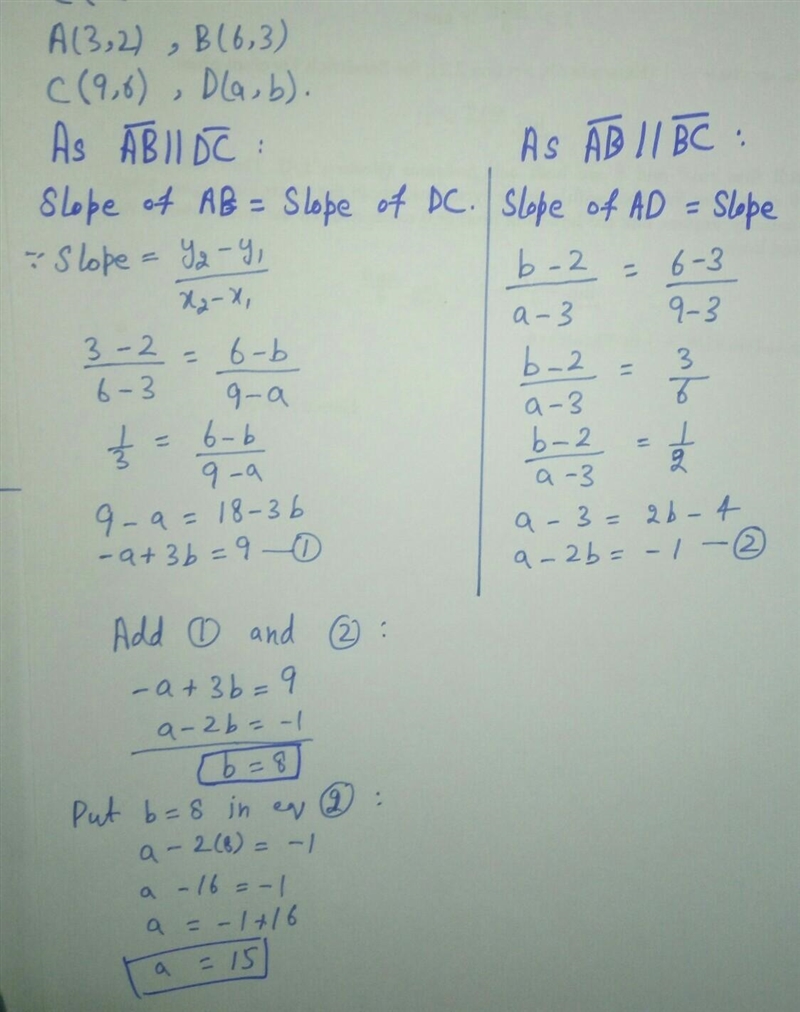 A(3,2) , B(6,3)
C(9,6) , D(a,b).
As A̅B̅ || D̅C̅ :
Slope of AB = Slope of DC.
∵ Slope = (y₂ - y₁)/(x₂ - x₁)
(3 - 2)/(6 - 3) = (6 - b)/(9 - a)
1/3 = (6 - b)/(9 - a)
9 - a = 18 - 3b
-a + 3b = 9 — ①
As A̅D̅ || B̅C̅ :
Slope of AD = Slope
(b - 2)/(a - 3) = (6 - 3)/(9 - 3)
(b - 2)/(a - 3) = 3/6
(b - 2)/(a - 3) = 1/2
a - 3 = 2b - 4
a - 2b = -1 — ②
Add ① and ② :
-a + 3b = 9
a - 2b = -1
b = 8
Put b = 8 in eq ② :
a - 2(8) = -1
a - 16 = -1
a = -1 + 16
a = 15